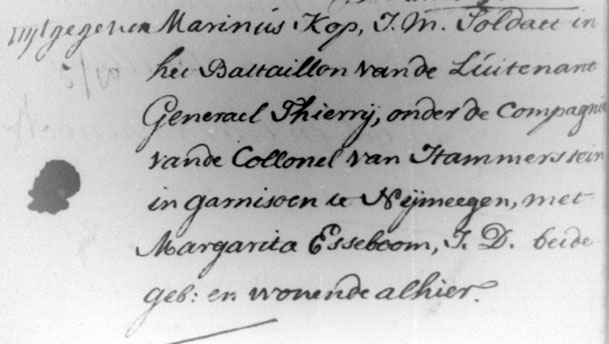 uytgegeven Marinus Kop, J. M. Soldaet in
het Battaillon vande Lúitenant
Generael Thierrÿ, onder de Compagnie
vande Collonel van Hammerstein
in garnisoen te Nÿmeegen, met
Margarita Esseboom, J. D. beide
geb: en wonende alhier.